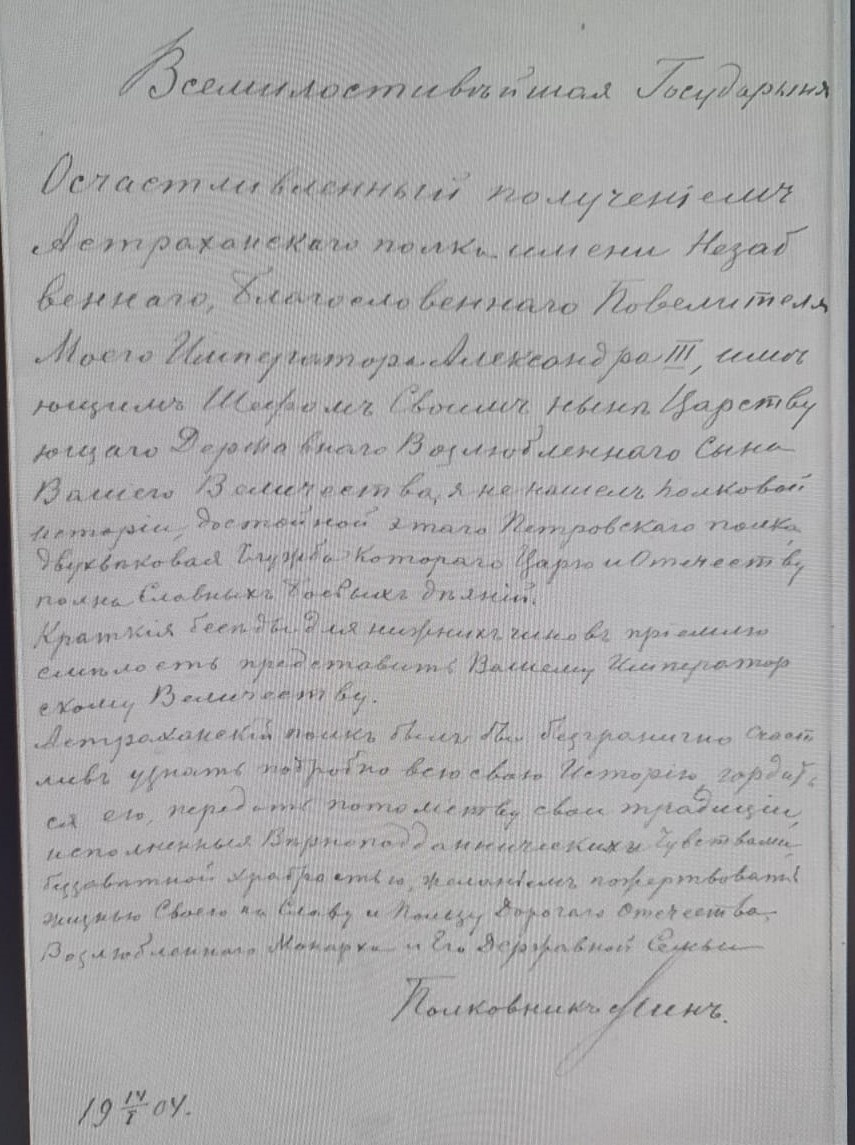 Всемилостивѣйшая Государыня
Осчастливленный полученіемъ
Астраханскаго полка имени Незаб
веннаго, Благословеннаго Повелителя
Моего Императора Александра III, имѣ
ющимъ Шефомъ Своимъ нынѣ Царству
ющаго Державнаго Возлюбленнаго Сына
Вашего Величества, я не нашелъ полковой
исторіи, достойной этаго Петровскаго полка,
двухвѣковая Служба котораго Царю и Отечеству
полна Славныхъ Боевыхъ дѣяній.
Краткія бесѣды для нижнихъ чиновъ пріемлю
смѣлость представить Вашему Император
скому Величеству.
Астраханскій полкъ былъ бы безгранично счаст
ливъ узнать подробно всю свою Исторію, гордить
ся ею, передать потомству свои традиціи,
исполненныя Вѣрноподданническими Чувствами,
беззаватной храбростью, желаніемъ пожертвовать
жизнью Своею на Славу и Пользу Дорогаго Отечества,
Возлюбленнаго Монарха и Его Державной Семьи
Полковникъ Минъ.
19 IV/I 04.